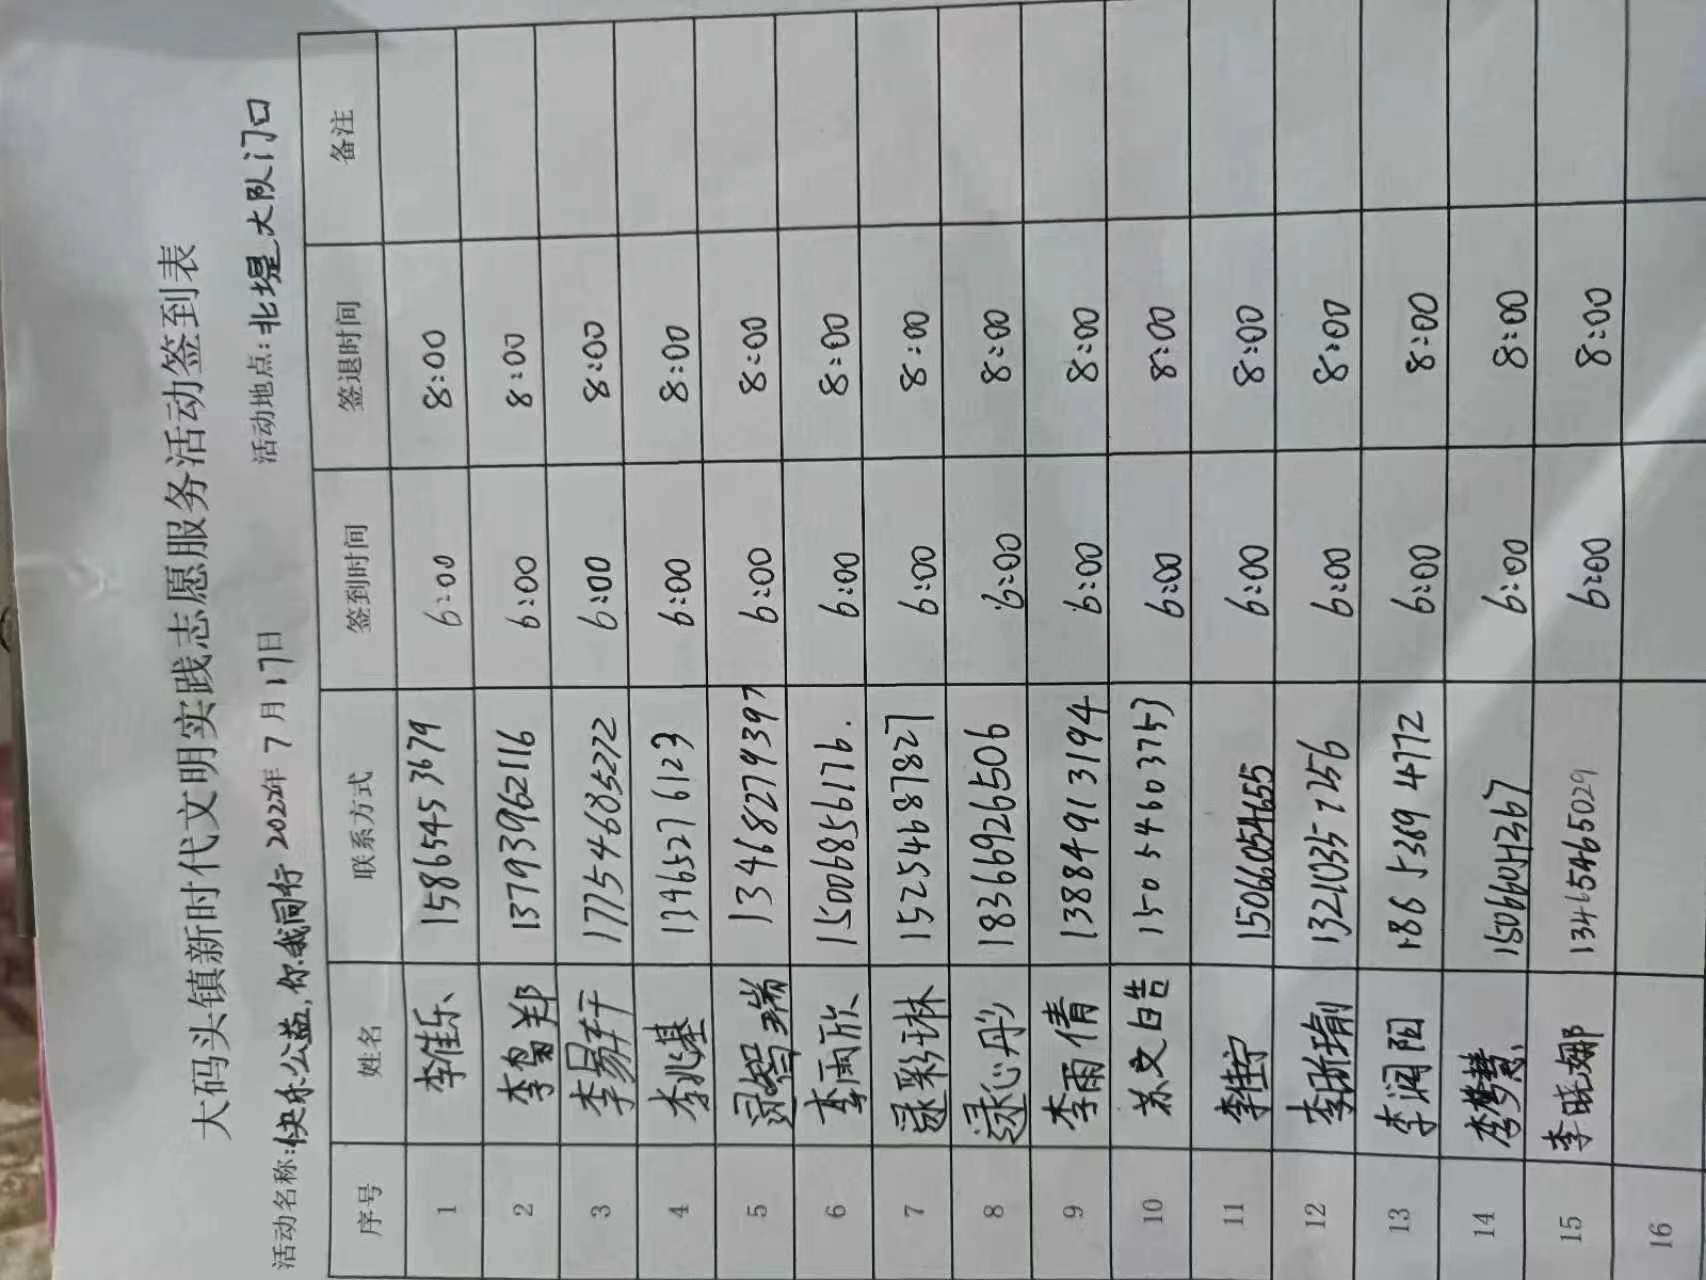 大码头镇新时代文明实践志愿服务活动签到表
活动名称:快乐公益,你我同行 2022年 7月17日 活动地点:北堤大队门口
序号 姓名 联系方式 签到时间 签退时间 备注
1 李佳乐 15865453679 6:00 8:00
2 李鲁郑 13793962116 6:00 8:00
3 李易轩 17754605272 6:00 8:00
4 李兆基 13465276123 6:00 8:00
5 智瑞 13468279397 6:00 8:00
6 李雨欣 15006856176. 6:00 8:00
7 彩琳 15254687827 6:00 8:00
8 心丹 18366926506 6:00 8:00
9 李雨倩 13884913194 6:00 8:00
10 苏文皓 15054603753 6:00 8:00
11 李佳宁 15066054655 6:00 8:00
12 李昕瑜 13210357256 6:00 8:00
13 李润阳 18653894772 6:00 8:00
14 李梦慧 6:00 8:00
15 李晓娜 13465465029 6:00 8:00
16